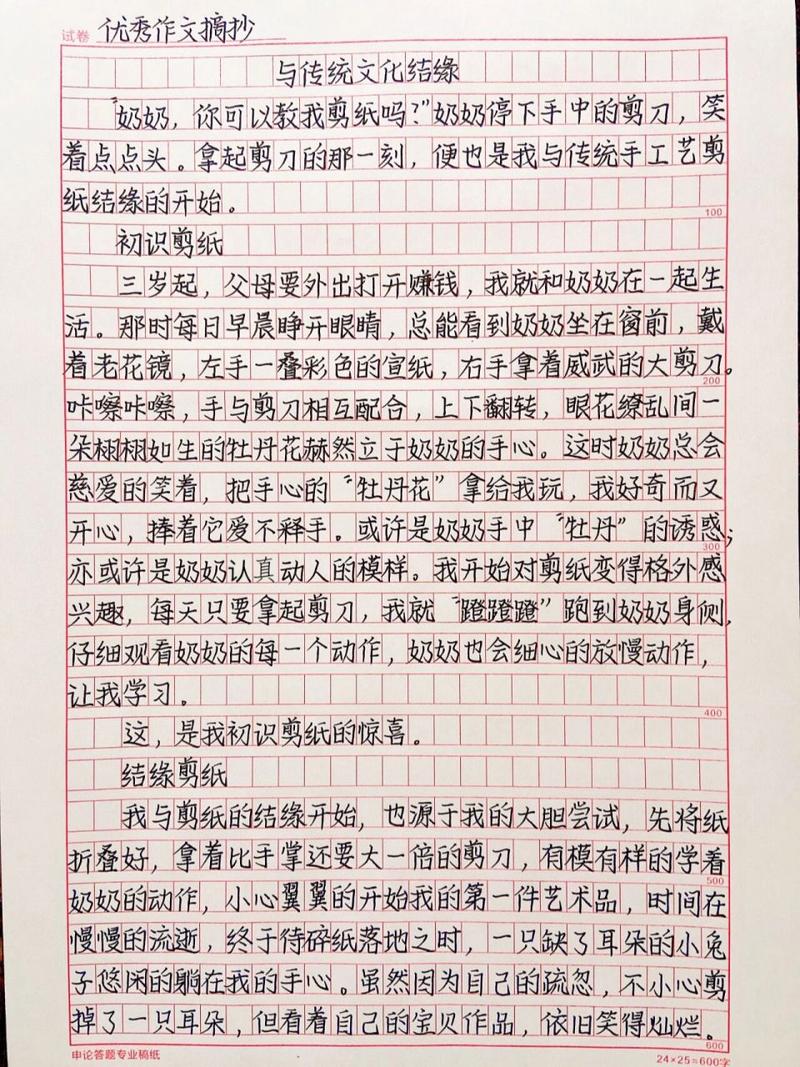 试卷 优秀作文摘抄
与传统文化结缘
“奶奶，你可以教我剪纸吗？”奶奶停下手中的剪刀，笑
着点点头。拿起剪刀的那一刻，便也是我与传统手工艺剪
纸结缘的开始。
100
初识剪纸
三岁起，父母要外出打开赚钱，我就和奶奶在一起生
活。那时每日早晨睁开眼睛，总能看到奶奶坐在窗前，戴
着老花镜，左手一叠彩色的宣纸，右手拿着威武的大剪刀。
200
咔嚓咔嚓，手与剪刀相互配合，上下翻转，眼花缭乱间一
朵栩栩如生的牡丹花赫然立于奶奶的手心。这时奶奶总会
慈爱的笑着，把手心的“牡丹花”拿给我玩，我好奇而又
开心，捧着它爱不释手。或许是奶奶手中“牡丹”的诱惑；
300
亦或许是奶奶认真动人的模样。我开始对剪纸变得格外感
兴趣，每天只要拿起剪刀，我就“蹬蹬蹬”跑到奶奶身侧，
仔细观看奶奶的每一个动作，奶奶也会细心的放慢动作，
让我学习。
400
这，是我初识剪纸的惊喜。
结缘剪纸
我与剪纸的结缘开始，也源于我的大胆尝试，先将纸
折叠好，拿着比手掌还要大一倍的剪刀，有模有样的学着
500
奶奶的动作，小心翼翼的开始我的第一件艺术品，时间在
慢慢的流逝，终于待碎纸落地之时，一只缺了耳朵的小兔
子悠闲的躺在我的手心。虽然因为自己的疏忽，不小心剪
掉了一只耳朵，但看着自己的宝贝作品，依旧笑得灿烂。
600
申论答题专业稿纸 24×25=600字